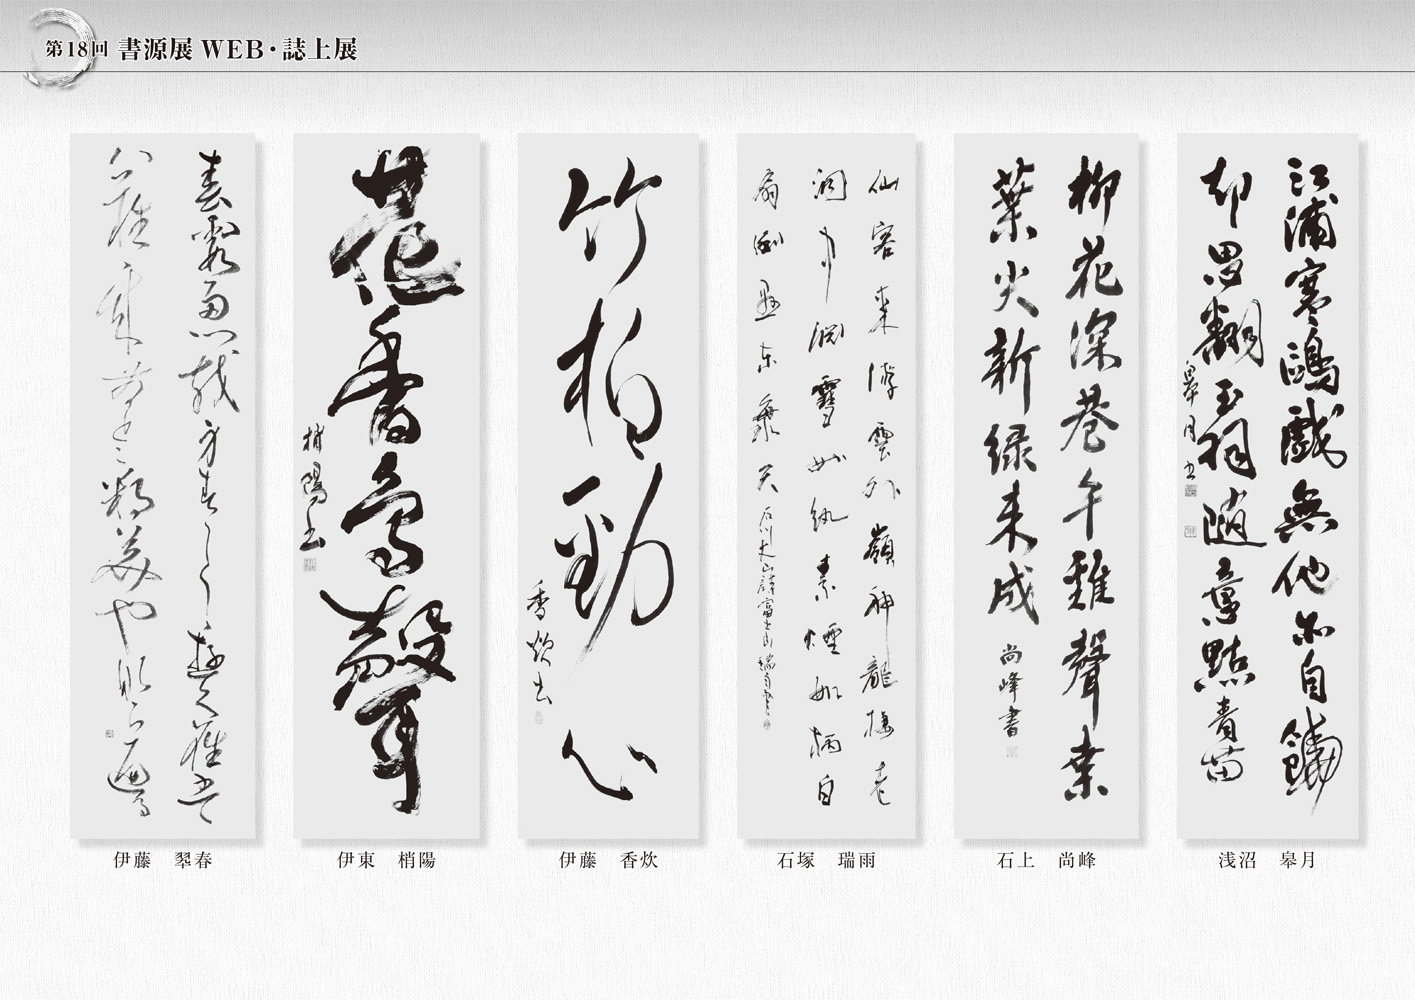 第18回 書源展 WEB・誌上展
江浦寒鷗戲無他亦自饒
却思翻玉羽隨意點青苗
皋月書
浅沼 皋月
柳花深巷午雞聲桑
葉尖新緑未成
尚峰書
石上 尚峰
仙客来遊雲外嶺神龍棲老
洞中淵雪如紈素煙如柄白
扇倒懸東海天
石川丈山詩富士山 瑞雨書
石塚 瑞雨
竹柏勁心
香炊書
伊藤 香炊
花香鳥聲
梢陽書
伊東 梢陽
伊藤 翠春